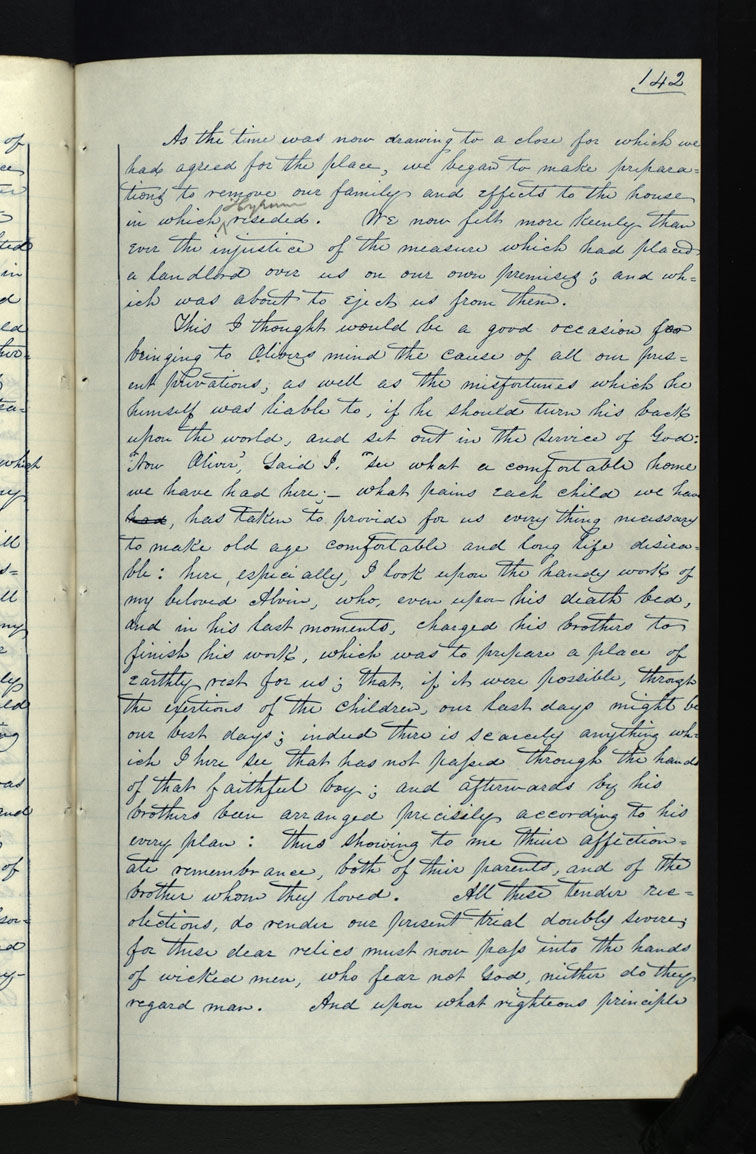 142
As the time was now drawing to a close for which we
had agreed for the place, we began to make prepara=
tions to remove our family and effects to the house
Hyrum
in which ^ reseded. We now felt more keenly than
ever the injustice of the measure which had placed
a landlord over us on our own premises; and wh=
ich was about to eject us from them.
This I thought would be a good occasion for
bringing to Olivers mind the cause of all our pres=
ent privations, as well as the misfortunes which he
himself was liable to, if he should turn his back
upon the world, and set out in the service of God:
"Now Oliver", said I. "see what a comfortable home
we have had here;— what pains each child we have
had, has taken to provide for us every thing necessary
to make old age comfortable and long life desira=
ble: here, especially, I look upon the handy work of
my beloved Alvin, who, even upon his death bed,
and in his last moments, charged his brothers to
finish his work, which was to prepare a place of
earthly rest for us; that, if it were possible, through
the exertions of the children, our last days might be
our best days; indeed there is scarcely anything wh=
ich I here see that has not passed through the hands
of that faithful boy; and afterwards by his
brothers been arranged precisely according to his
every plan: thus showing to me their affection=
ate remembrance, both of their parents, and of the
brother whom they loved. All these tender rec=
olections, do render our present trial doubly severe;
for these dear relics must now pass into the hands
of wicked men, who fear not God, neither do they
regard man. And upon what righteous principle